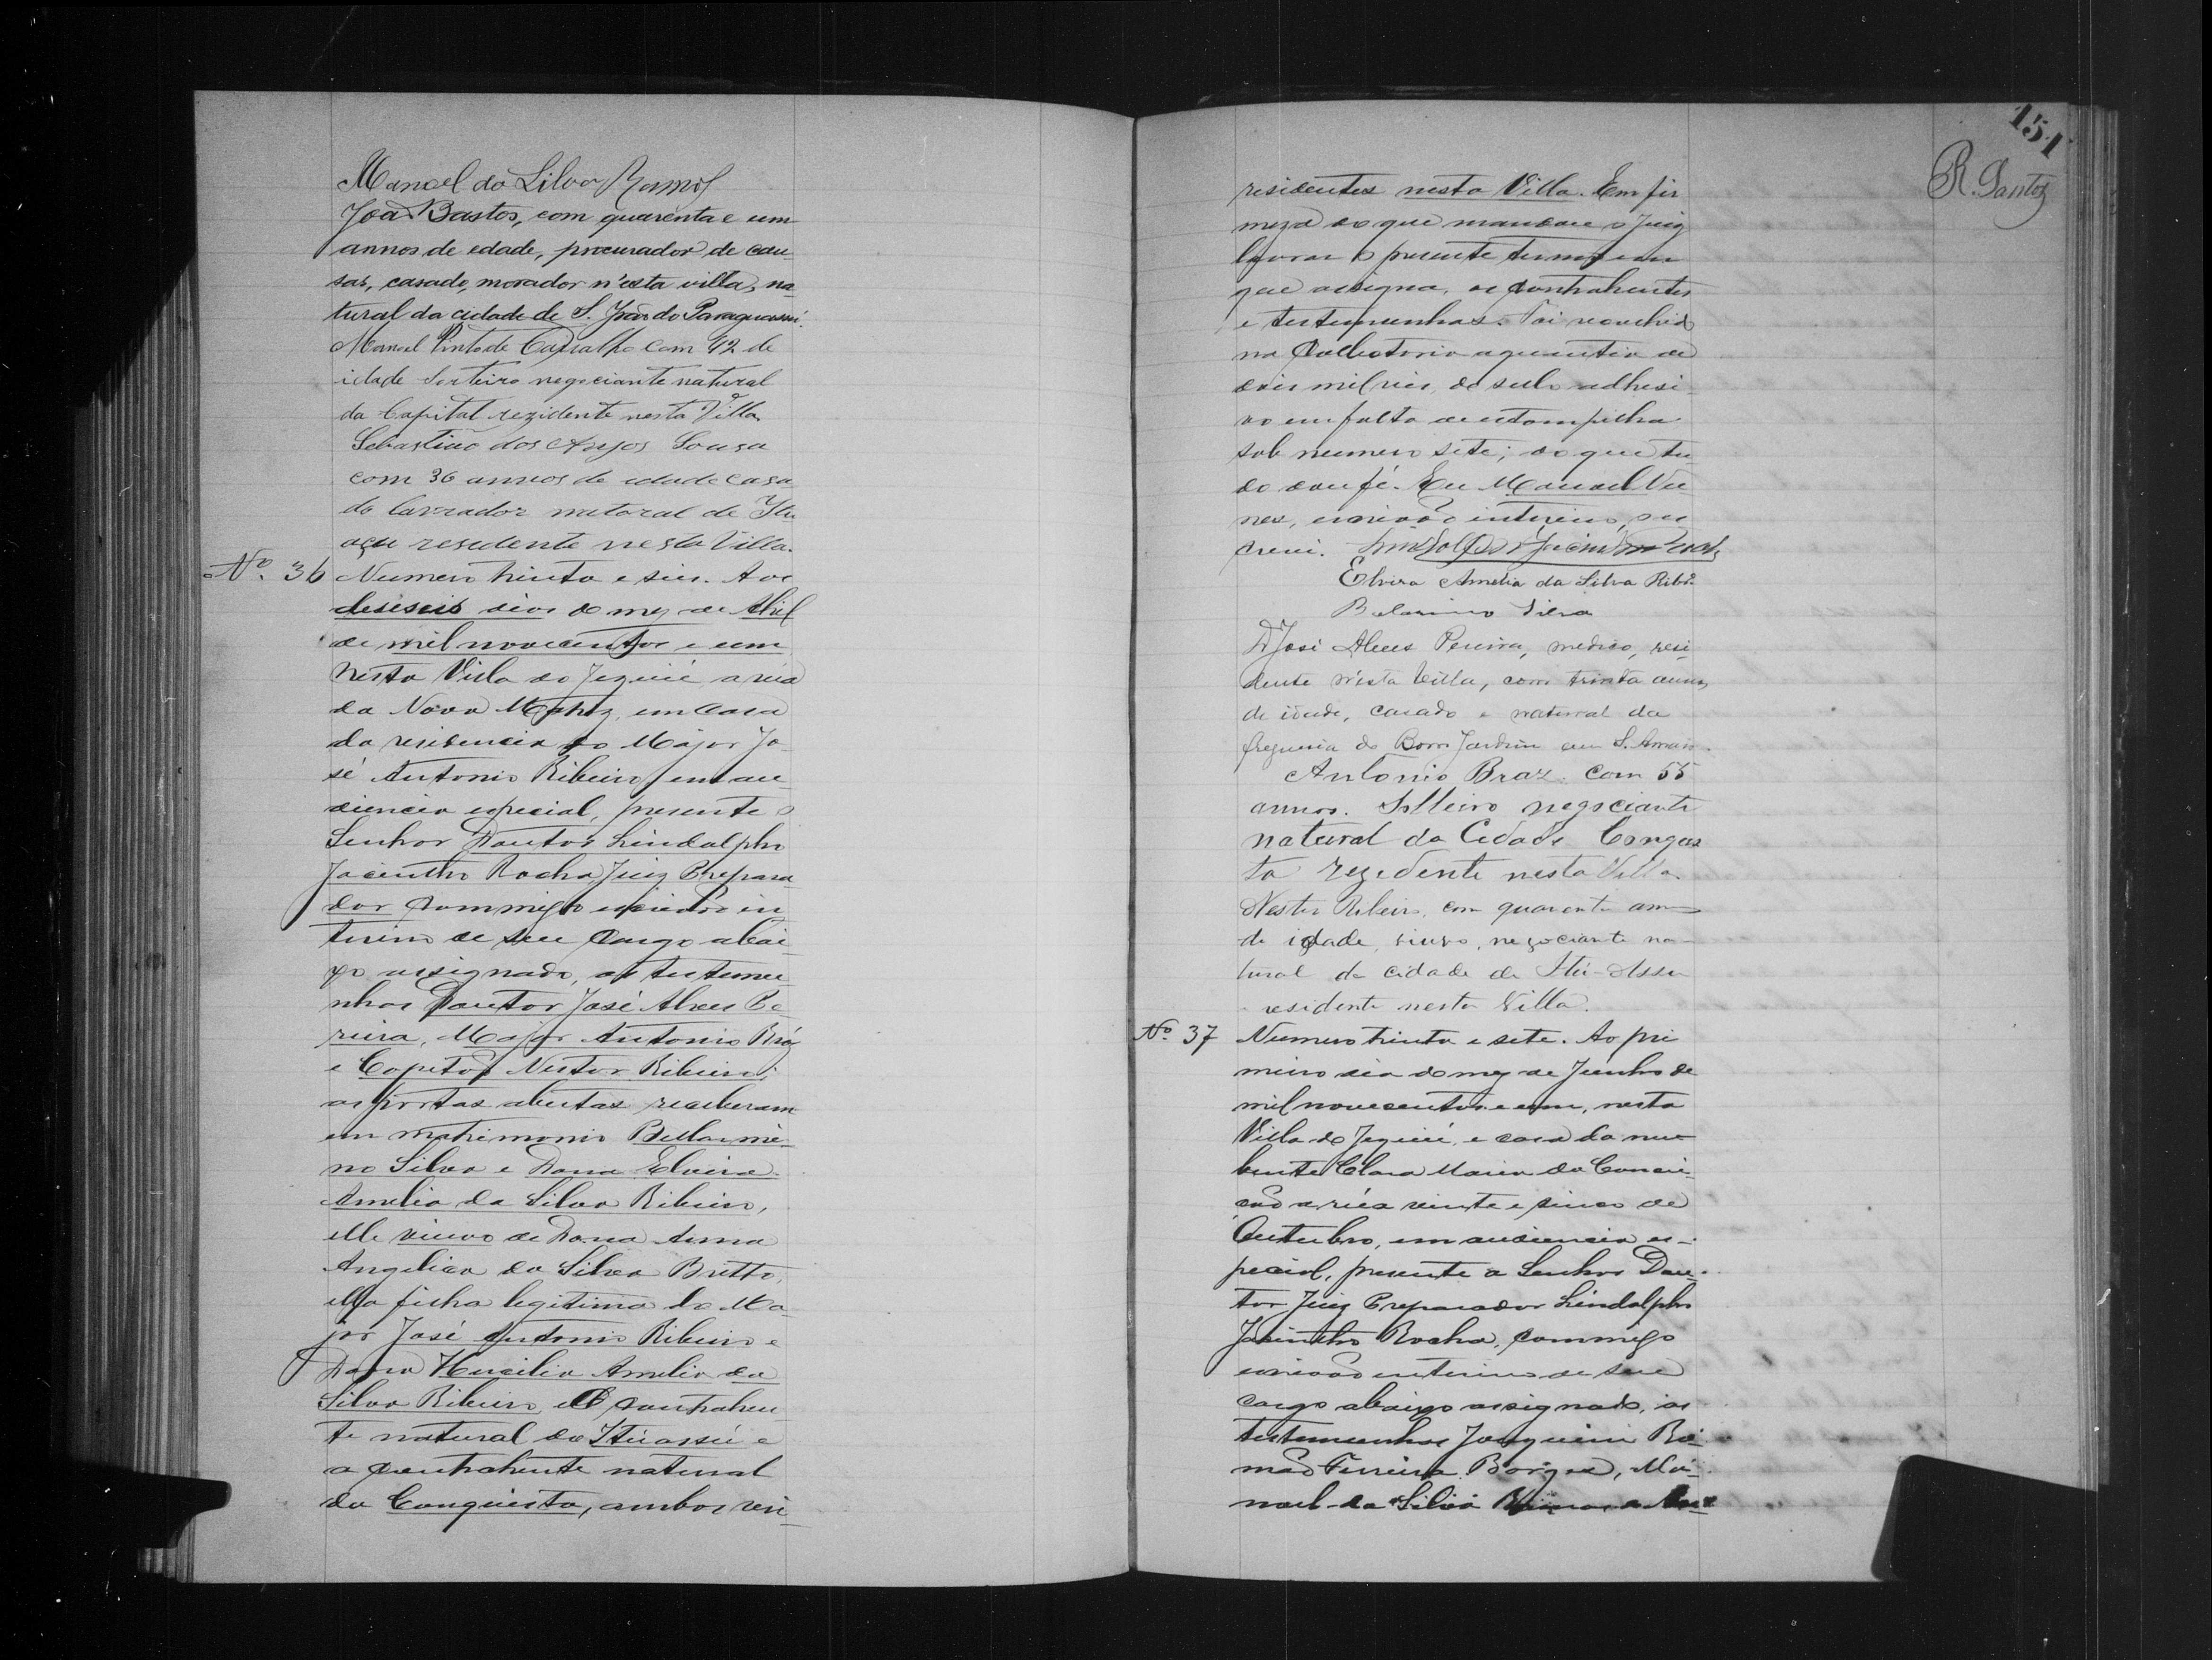 Manoel da Silva Ramos
João Bastos, com quarenta e um
annos de edade, procurador de cau
sas, casado, morador n'esta villa, na
tural da cidade de S. João do Paraguassú.
Manoel Pinto de Carvalho com 42 de
idade Sorteiro negociante natural
da Capital rezidente nesta Villa
Sebastião dos Anjos Sousa
com 36 annos de edade casa
do lavrador natoral de Itu
açu resedente nesta Villa.
Nº. 36 Numero trinta e seis. Aos
deseseis dias do mez de Abril
de mil novecentos e um
nesta Villa do Jequié, a rua
da Nova Matriz, em casa
da residencia do Major Jo
sé Antonio Ribeiro, em au
diencia especial, presente o
Senhor Doutor Lindolpho
Jacintho Rocha, Juiz Prepara
dor commigo escrivão in
terino de seu cargo abai
xo assignado, as testemu
nhas Doutor José Alves Pe
reira, Major Antonio Braz
e Capitão Nestor Ribeiro;
as portas abertas receberam
em matrimonio Bellarmi
no Silva e Dona Elvira
Amelia da Silva Ribeiro,
elle viuvo de Dona Anna
Angelica da Silva Britto,
ella filha legitima do Ma
jor José Antonio Ribeiro e
Dona Hercilia Amelia da
Silva Ribeiro, contrahen
te natural do Ituassú e
a contrahente natural
da Conquista, ambos resi
151
R. Santos
residentes nesta Villa. Em fir
meza do que mandou o Juiz
lavrar o presente termo em
que assigna, os contrahentes
e testemunhas. Foi recolhido
na Collectoria a quantia de
dois mil reis, do sello adhesi
vo em falta de estampilha
sob numero sete; do que tu
do dou fé. Eu Manoel Nu
nes, escrivão interino, es
crevi. Lindolpho Jacintho Rocha
Elvira Amelia da Silva Ribrº
Belarmino Silva
Dr José Alves Pereira, medico, resi
dente n'esta Villa, com trinta annos
de idade, casado e natural da
freguesia do Bom Jardim em S. Amaro.
Antonio Braz. com 55
annos. Solteiro negociante
natural da Cidade Conques
ta rezedente nesta Villa.
Nestor Ribeiro, com quarenta annos
de idade, viuvo, negociante na
tural da cidade de Itú-Assu
residente nesta Villa.
Nº. 37 Numero trinta e sete. Ao pri
meiro dia do mez de Junho de
mil novecentos e um, nesta
Villa do Jequié, e casa da nu
bente Clara Maria da Concei
ção a rua vinte e cinco de
Outubro, em audiencia es
pecial, presente o Senhor Dou
tor Juiz Preparador Lindolpho
Jacintho Rocha, commigo
escrivão interino de seu
cargo abaixo assignado, as
testemunhas Joaquim Ro
mão Ferreira Borges, Ma
noel da Silva